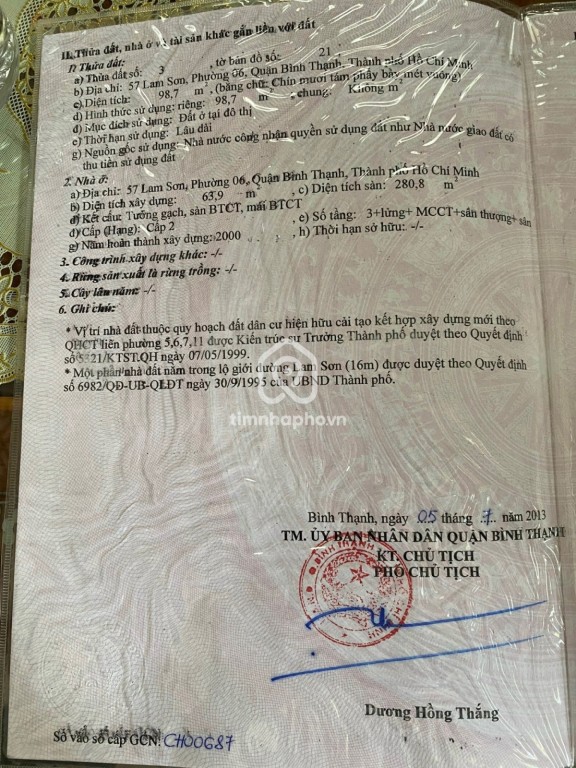 II. Thửa đất, nhà ở và tài sản khác gắn liền với đất
1. Thửa đất:
a) Thửa đất số: 3 , tờ bản đồ số: 21
b) Địa chỉ: 57 Lam Sơn, Phường 06, Quận Bình Thạnh, Thành phố Hồ Chí Minh
c) Diện tích: 98,7 m², (bằng chữ: Chín mươi tám phẩy bảy mét vuông)
d) Hình thức sử dụng: riêng: 98,7 m², chung: Không m²
đ) Mục đích sử dụng: Đất ở tại đô thị
e) Thời hạn sử dụng: Lâu dài
g) Nguồn gốc sử dụng: Nhà nước công nhận quyền sử dụng đất như Nhà nước giao đất có
thu tiền sử dụng đất
2. Nhà ở:
a) Địa chỉ: 57 Lam Sơn, Phường 06, Quận Bình Thạnh, Thành phố Hồ Chí Minh
b) Diện tích xây dựng: 63,9 m², c) Diện tích sàn: 280,8 m²
d) Kết cấu: Tường gạch, sàn BTCT, mái BTCT
đ) Cấp (Hạng): Cấp 2 , e) Số tầng: 3+lửng+ MCCT+sân thượng+ sân
g) Năm hoàn thành xây dựng: 2000 h) Thời hạn sở hữu: -/-
3. Công trình xây dựng khác: -/-
4. Rừng sản xuất là rừng trồng: -/-
5. Cây lâu năm: -/-
6. Ghi chú:
* Vị trí nhà đất thuộc quy hoạch đất dân cư hiện hữu cải tạo kết hợp xây dựng mới theo
QHCT liên phường 5,6,7,11 được Kiến trúc sư Trưởng Thành phố duyệt theo Quyết định
21/KTST.QH ngày 07/05/1999.
* Một phần nhà đất nằm trong lộ giới đường Lam Sơn (16m) được duyệt theo Quyết định
số 6982/QĐ-UB-QLĐT ngày 30/9/1995 của UBND Thành phố.
timnhapho.vn
Bình Thạnh, ngày 05 tháng 7 năm 2013
TM. ỦY BAN NHÂN DÂN QUẬN BÌNH THẠNH
KT. CHỦ TỊCH
PHÓ CHỦ TỊCH
Dương Hồng Thắng
Số vào sổ cấp GCN: CH00687